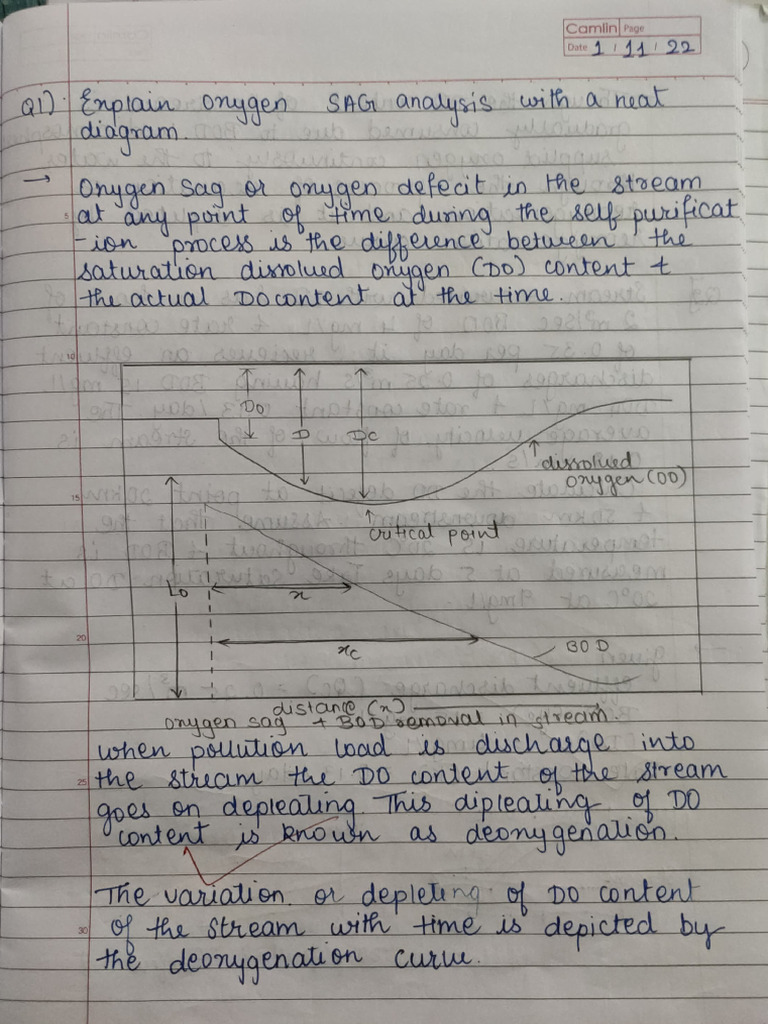 Camlin Page
Date 1 / 11 / 22
Q1) Explain oxygen SAG analysis with a neat
diagram.
→ Oxygen sag or oxygen defecit in the stream
at any point of time during the self purificat
-ion process is the difference between the
saturation dissolved oxygen (DO) content &
the actual DO content at the time.
Do
D
Dc
dissolved
oxygen (DO)
critical point
Lo
x
xc
BOD
distance (x)
oxygen sag + BOD removal in stream.
when pollution load is discharge into
the stream the DO content of the stream
goes on depleating. This dipleating of DO
content is known as deoxygenation.
The variation or depleting of DO content
of the stream with time is depicted by
the deoxygenation curve.
10
15
20
25
30